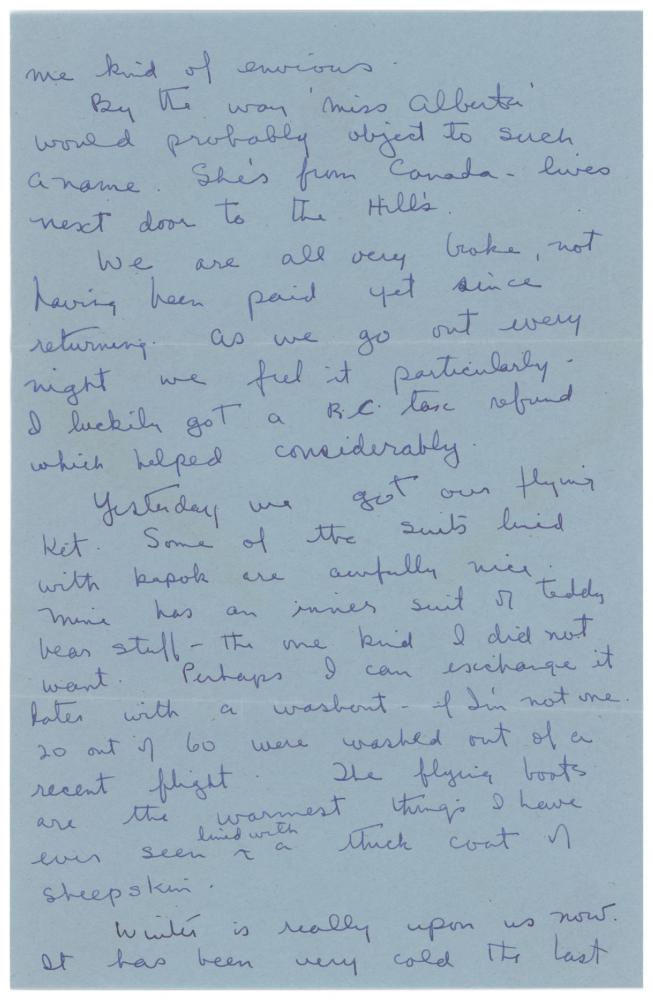 me kind of envious.
By the way 'miss Alberta'
would probably object to such
a name. She's from Canada - lives
next door to the Hill's.
We are all very broke, not
having been paid yet since
returning. As we go out every
night we feel it particularly.
I luckily got a B.C. tax refund
which helped considerably.
Yesterday we got our flying
Kit. Some of the suits lined
with kapok are awfully nice.
Mine has an inner suit of teddy
bear stuff - the one kind I did not
want. Perhaps I can exchange it
later with a washout - if I'm not one.
20 out of 60 were washed out of a
recent flight. The flying boots
are the warmest things I have
lined with
ever seen a thick coat of
sheepskin.
Winter is really upon us now.
It has been very cold the last